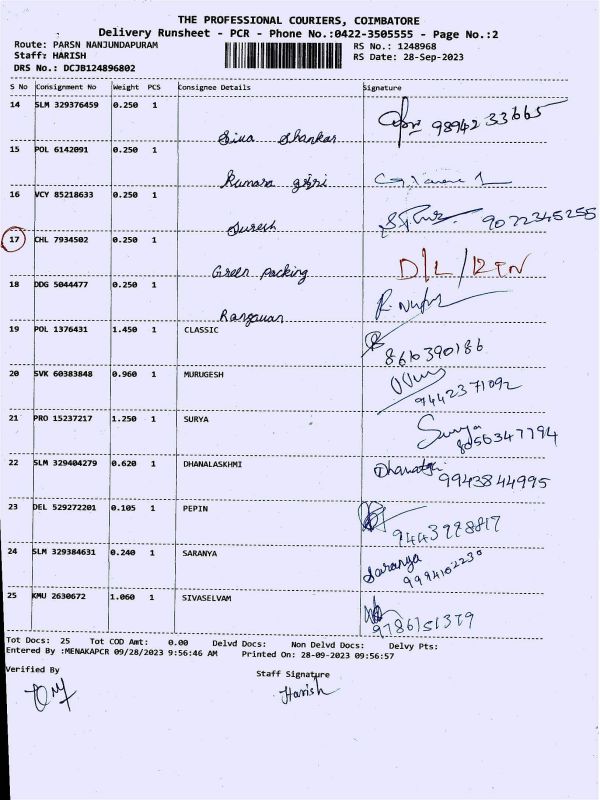 THE PROFESSIONAL COURIERS, COIMBATORE
Delivery Runsheet - PCR - Phone No.:0422-3505555 - Page No.:2
Route: PARSN NANJUNDAPURAM
RS No.: 1248968
Staff: HARISH
RS Date: 28-Sep-2023
DRS No.: DCJB124896802
S No Consignment No Weight PCS Consignee Details Signature
14 SLM 329376459 0.250 1
98942 33665
Siva Shankar
15 POL 6142091 0.250 1
Kumara giri
16 VCY 85218633 0.250 1
9072345255
Suresh
17 CHL 7934502 0.250 1
Green packing D/L/
18 DDG 5044477 0.250 1
19 POL 1376431 1.450 1 CLASSIC
8610390186
20 SVK 60383848 0.960 1 MURUGESH
9442371092
21 PRO 15237217 1.250 1 SURYA
Surya
8056347794
22 SLM 329404279 0.620 1 DHANALASKHMI
9943844995
23 DEL 529272201 0.105 1 PEPIN
24 SLM 329384631 0.240 1 SARANYA
Saranya
25 KMU 2630672 1.060 1 SIVASELVAM
Tot Docs: 25 Tot COD Amt: 0.00 Delvd Docs: Non Delvd Docs: Delvy Pts:
Entered By :MENAKAPCR 09/28/2023 9:56:46 AM Printed On: 28-09-2023 09:56:57
Verified By
Staff Signature
Harish